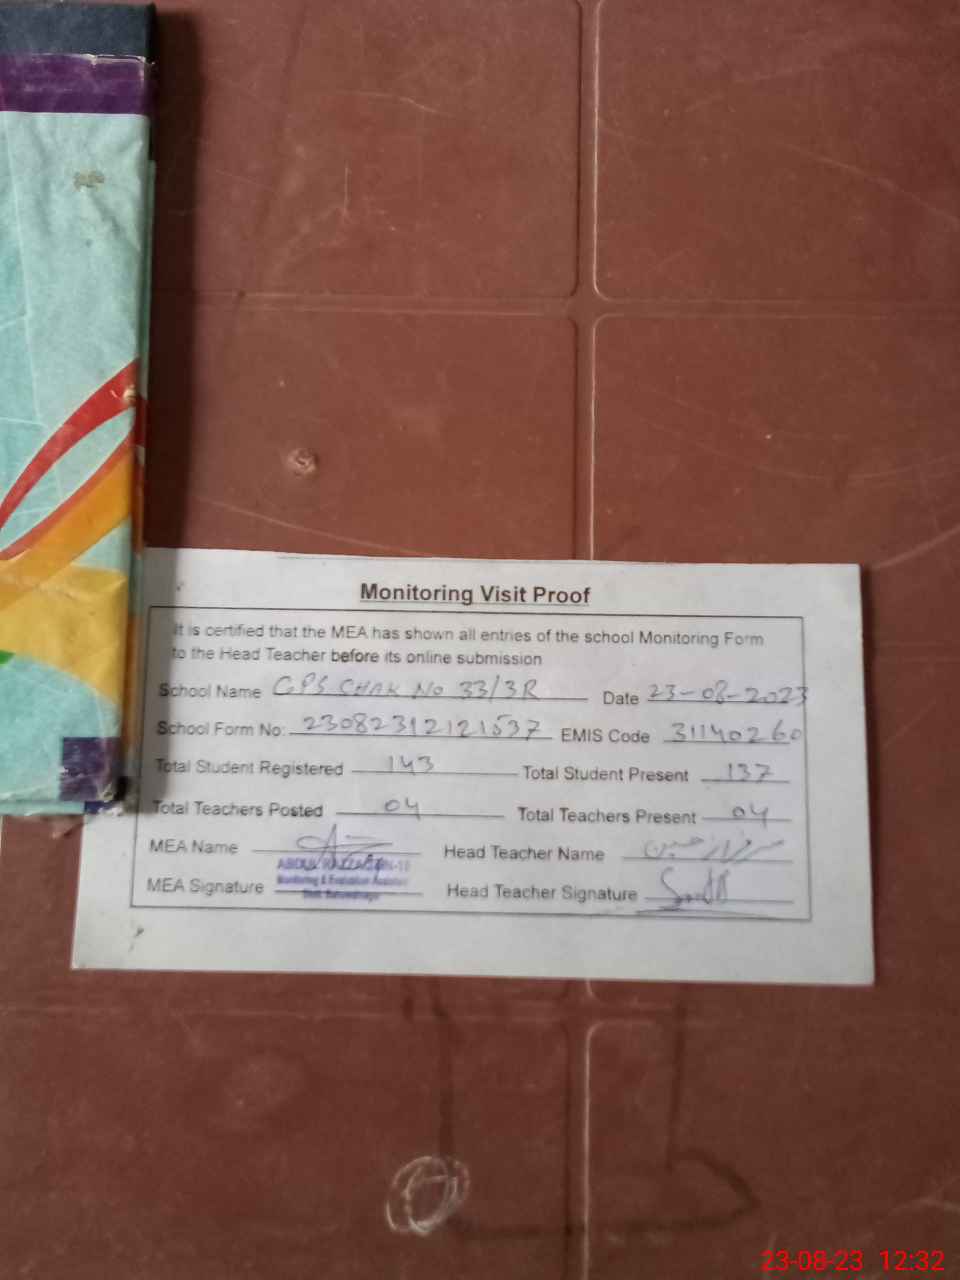 Monitoring Visit Proof
It is certified that the MEA has shown all entries of the school Monitoring Form
to the Head Teacher before its online submission
School Name GPS CHAK No 33/3R Date 23-08-2023
School Form No: 23082312121537 EMIS Code 31140260
Total Student Registered 143 Total Student Present 137
Total Teachers Posted 04 Total Teachers Present 04
MEA Name Head Teacher Name سرفراز حسین
ABDUL RAZZAQ
Monitoring & Evaluation Assistant
MEA Signature Head Teacher Signature
Distt. Bahawalnagar
23-08-23 12:32